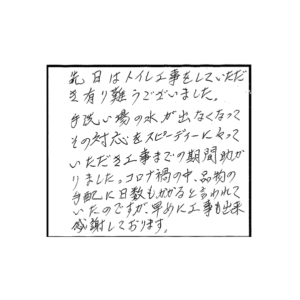 先日はトイレ工事をしていただ
き有り難うございました。
手洗い場の水が出なくなって
もの対応をスピーディーにやって
いただき工事までの期間助か
りました。コロナ禍の中、品物の
手配に日数もかかると言われて
いたのですが、早めに工事も出来
感謝しております。